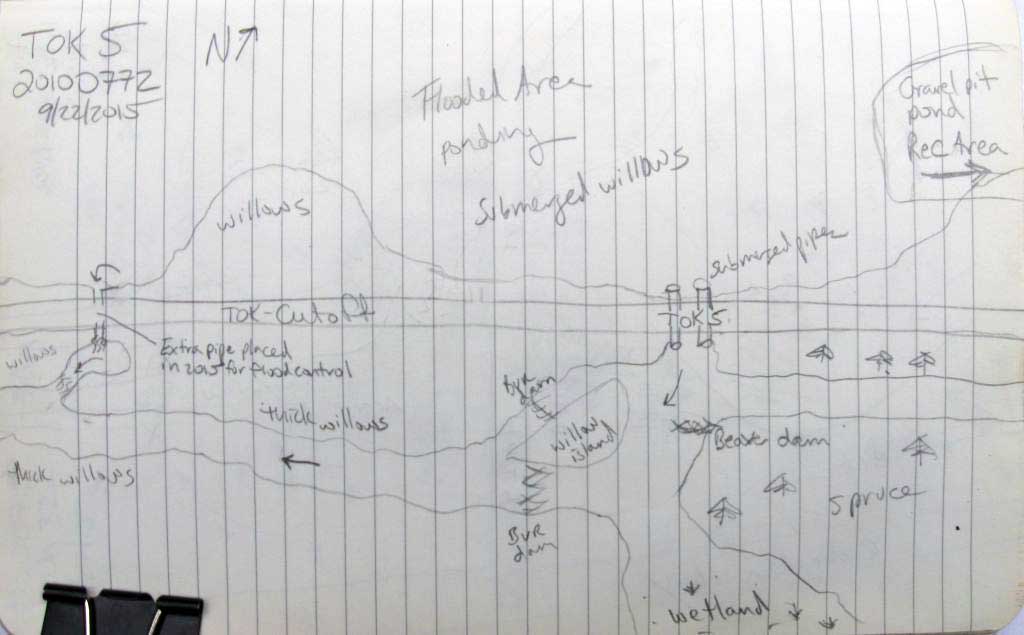 TOK 5
20100772
9/22/2015
N
Flooded Area
ponding
Submerged willows
Gravel pit
pond
Rec Area
willows
submerged pipes
TOK-Cutoff
TOK 5
willows
Extra pipe placed
in 2015 for flood control
BVR
dam
thick willows
willow
island
Beaver dam
thick willows
spruce
BVR
dam
wetland